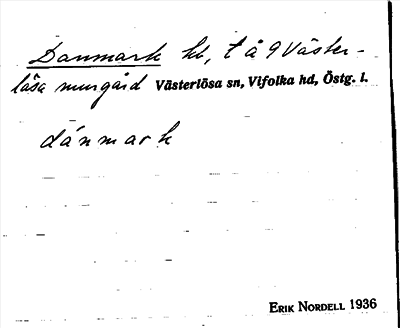 Danmark hl, t å 9 Väster-
lösa mungård Västerlösa sn, Vifolka hd, Östg. l.
dánmark
ERIK NORDELL 1936